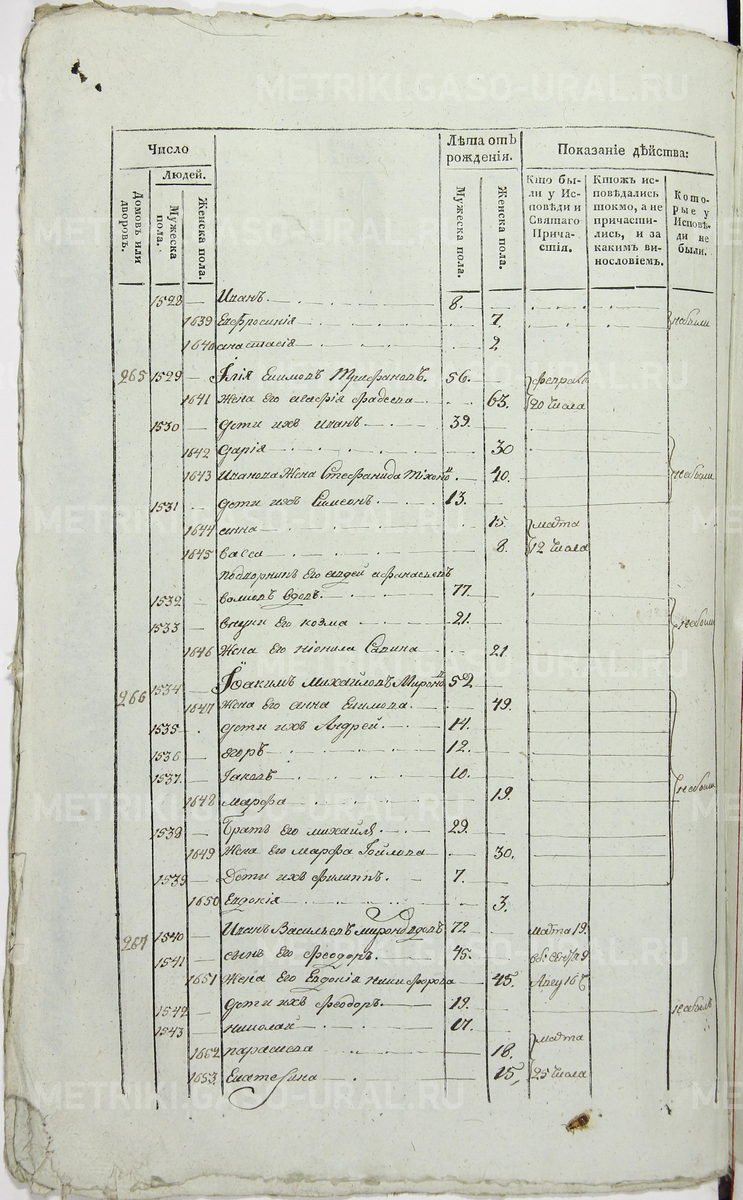 METRIKI.GASO-URAL.RU
Число
Лѣта отъ рожденія.
Показаніе дѣйства:
Людей.
Домовъ или дворовъ.
Мужеска пола.
Женска пола.
Мужеска пола.
Женска пола.
Кто были у Исповѣди и Святаго Причастія.
Ктожъ исповѣдались токмо, а не причастились, и за какимъ винословіемъ.
Которые у Исповѣди не были.
1528 — Иванъ — 8.
1639 Евфросинія — 7 небыли
1640 анастасія — 2
265 1529 — Илія Ефимовъ 56. февраля
1641 Жена Его агафія фадеева — 63. 20 числа
1530 — дѣти ихъ Иванъ — 39.
1642 дарія — 30
1643 Иванова Жена Стефанида — 40. небыли
1531 — дѣти ихъ Симеонъ — 13.
1644 анна — 15. марта
1645 васса — 8. 12 числа
Его афанасьевъ
1532 — вдовъ — 77
1533 — внуки Его козма — 21. небыли
1646 Жена Его Савина — 21
266 1534 — Іоакимъ Михайловъ 52
1647 Жена Его анна Ефимова — 49.
1535 . дѣти ихъ Андрей — 14.
1536 — Егоръ — 12.
1537. — Іаковъ — 10. небыли
1648 марфа — 19.
1538 — Братъ Его михаилъ — 29.
1649 Жена Его марфа — 30.
1539 — Дѣти ихъ филиппъ — 7.
1650 Евдокія — 3.
267 1540 — Иванъ Васильевъ 72 марта 19.
1541 — сынъ Его Феодоръ — 45.
1651 Жена Его Евдокія никифорова — 45.
1542 — дѣти ихъ феодоръ — 19.
1543 — николай — 17.
1652 параскева — 18. марта
1653. Екатерина — 15, 25 числа